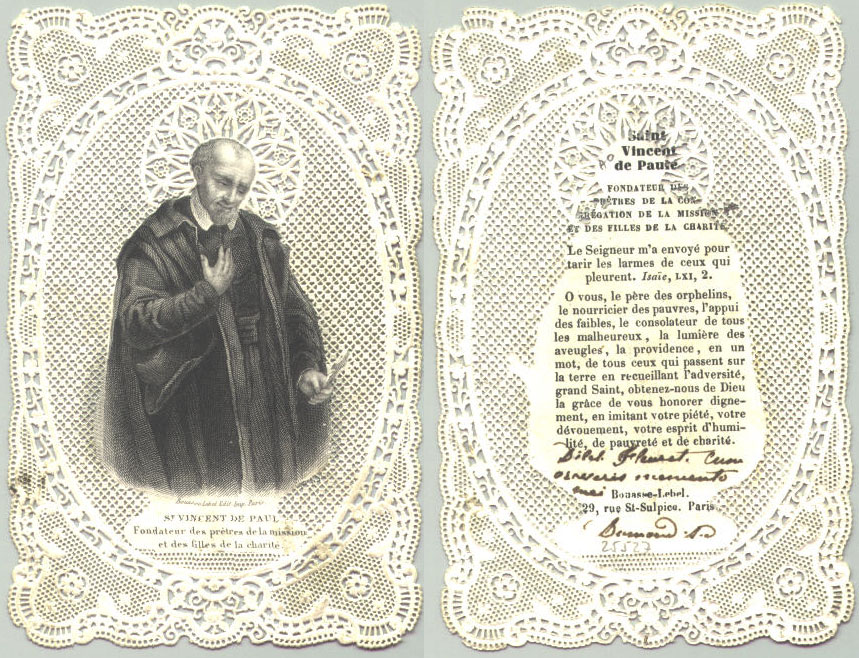 Bouasse-Lebel Edit. Imp. Paris
St VINCENT DE PAUL
Fondateur des prêtres de la mission
et des filles de la charité
Saint
Vincent
de Paule
FONDATEUR DES
PRÊTRES DE LA CON-
GRÉGATION DE LA MISSION
ET DES FILLES DE LA CHARITÉ
Le Seigneur m'a envoyé pour
tarir les larmes de ceux qui
pleurent. Isaïe, LXI, 2.
O vous, le père des orphelins,
le nourricier des pauvres, l'appui
des faibles, le consolateur de tous
les malheureux, la lumière des
aveugles, la providence, en un
mot, de tous ceux qui passent sur
la terre en recueillant l'adversité,
grand Saint, obtenez-nous de Dieu
la grâce de vous honorer digne-
ment, en imitant votre piété, votre
dévouement, votre esprit d'humi-
lité, de pauvreté et de charité.
memento
mei
Bouasse-Lebel.
29, rue St-Sulpice. Paris